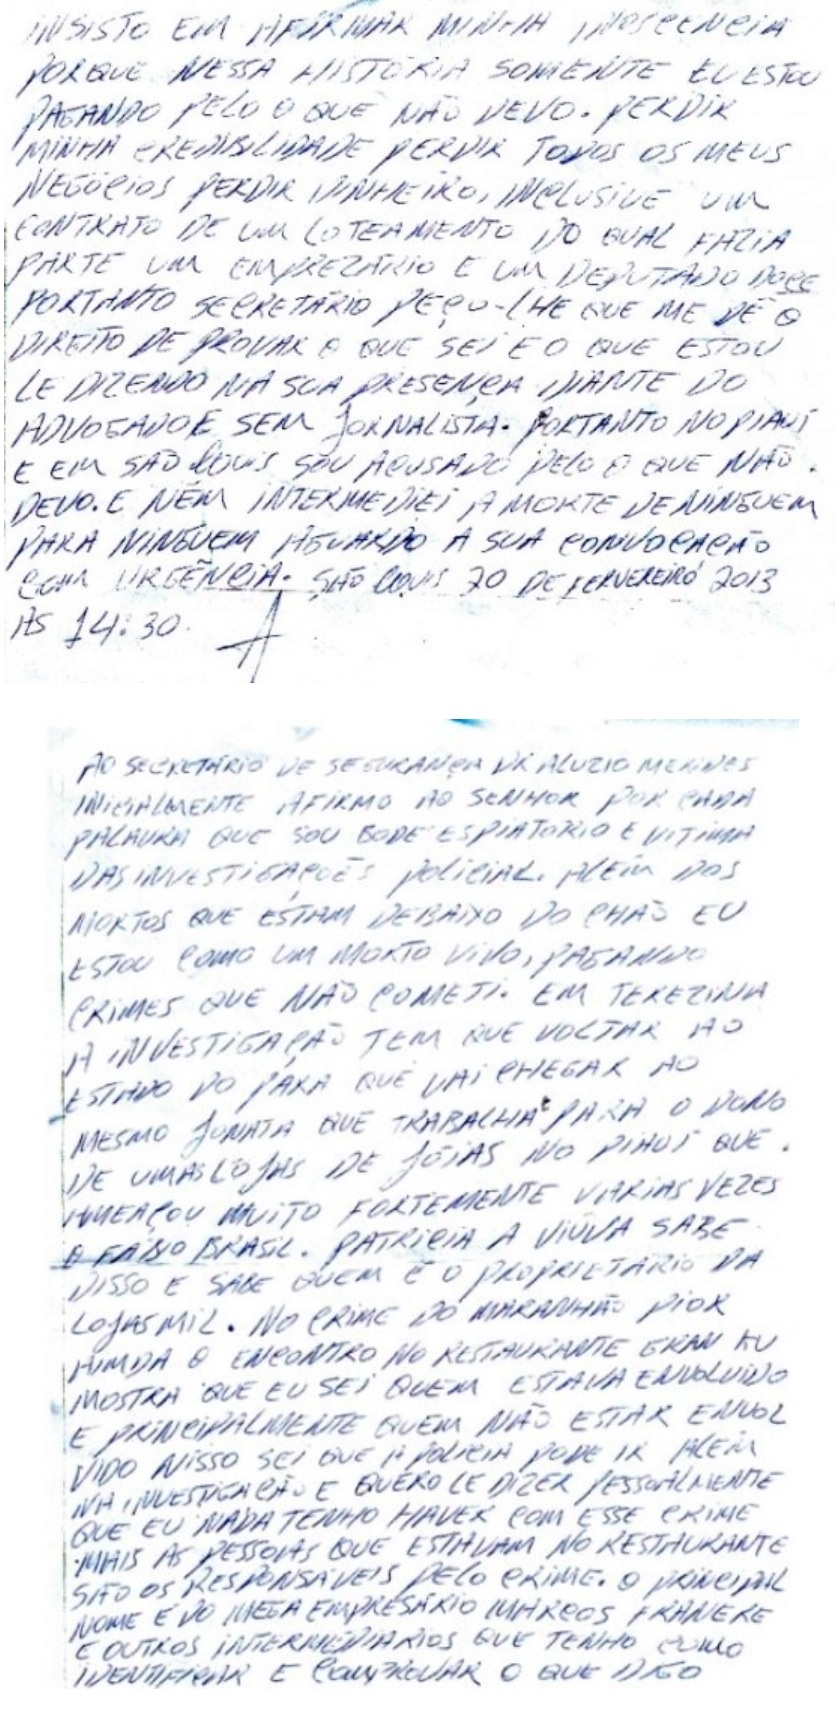 INSISTO EM AFIRMAR MINHA INOSCENCIA
PORQUE NESSA HISTÓRIA SOMENTE EU ESTOU
PAGANDO PELO O QUE NÃO DEVO. PERDIR
MINHA CREDIBILIDADE PERDIR TODOS OS MEUS
NEGÓCIOS PERDIR DINHEIRO, INCLUSIVE UM
CONTRATO DE UM LOTEAMENTO DO QUAL FAZIA
PARTE UM EMPREZÁRIO E UM DEPUTADO
PORTANTO SECRETÁRIO PEÇO-LHE QUE ME DÊ O
DIREITO DE PROVAR O QUE SEI E O QUE ESTOU
LE DIZENDO NA SUA PRESENÇA DIANTE DO
ADVOGADO E SEM JORNALISTA. PORTANTO NO PIAUÍ
E EM SÃO LOUIS SOU ACUSADO PELO O QUE NÃO
DEVO. E NÉM INTERMEDIEI A MORTE DE NINGUEM
PARA NINGUEM AGUARDO A SUA CONVOCAÇÃO
COM URGÊNCIA. SÃO LOUIS 20 DE FERVEREIRO 2013
AS 14:30
AO SECRETÁRIO DE SEGURANÇA DR ALUZIO MENDES
INICIALMENTE AFIRMO AO SENHOR POR CADA
PALAVRA QUE SOU BODE ESPIATORIO E VITIMA
DAS INVESTIGAÇÕES POLICIAL. ALÉM DOS
MORTOS QUE ESTAM DEBAIXO DO CHÃO EU
ESTOU COMO UM MORTO VIVO, PAGANDO
CRIMES QUE NÃO COMETI. EM TEREZINA
A INVESTIGAÇÃO TEM QUE VOLTAR AO
ESTADO DO PARÁ QUE VAI CHEGAR AO
MESMO JONATA QUE TRABALHA PARA O DONO
DE UMAS LOJAS DE JÓIAS NO PIAUÍ QUE
AMEAÇOU MUITO FORTEMENTE VARIAS VEZES
O FÁBIO BRASIL. PATRICIA A VIÚVA SABE
DISSO E SABE QUEM É O PROPRIETÁRIO DA
LOJAS MIL. NO CRIME DO MARANHÃO PIOR
AIMDA O ENCONTRO NO RESTAURANTE GRAN KU
MOSTRA QUE EU SEI QUEM ESTAVA ENVOLVIDO
E PRINCIPALMENTE QUEM NÃO ESTAR ENVOL
VIDO NISSO SEI QUE A POLICIA PODE IR ALÉM
NA INVESTIGAÇÃO E QUERO LE DIZER PESSOALMENTE
QUE EU NADA TENHO HAVER COM ESSE CRIME
MAIS AS PESSOAS QUE ESTAVAM NO RESTAURANTE
SÃO OS RESPONSÁVEIS PELO CRIME. O PRINCIPAL
NOME É DO MEGA EMPRESÁRIO MARCOS
E OUTROS INTERMEDIARIOS QUE TENHO COMO
IDENTIFICAR E COMPROVAR O QUE DIGO